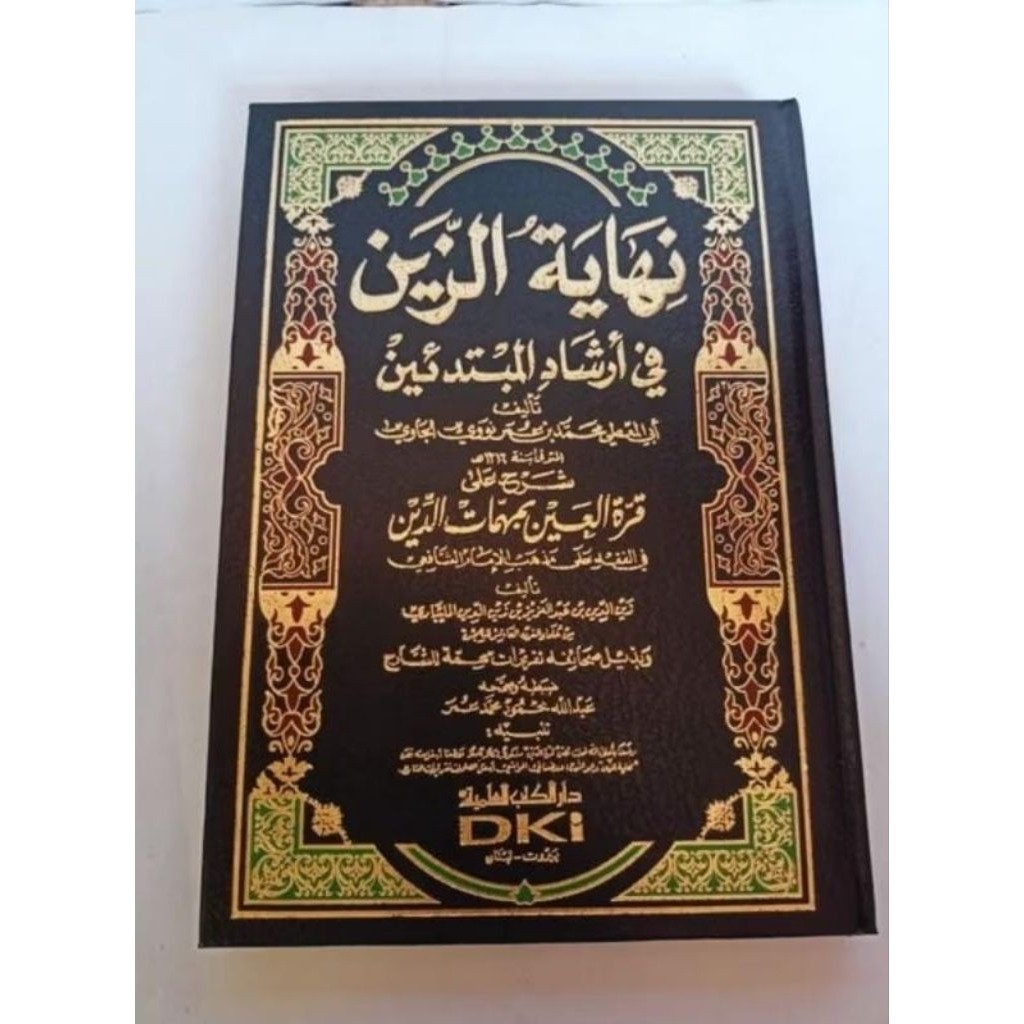 نِهَايَةُ الزَّيَن
في أرشَادِ المُبْتَدئينْ
تأليف
أبي المعطي محمد بن عمر نووي الجاوي
المتوفى سنة ١٣١٦هـ
شَرح عَلى
قرّة العَيْن بمهمّات الدِّين
في الفقه على مذهب الإمام الشافعي
تأليف
زين الدين بن عبد العزيز بن زين الدين المليباري
من علماء القرن العاشر الهجري
وبذيل صحائفه تقريرات مهمة للشارح
ضبطه وصححه
عبد الله محمود محمد عمر
تنبيه :
دار الكتب العلمية
DKi
بيروت - لبنان